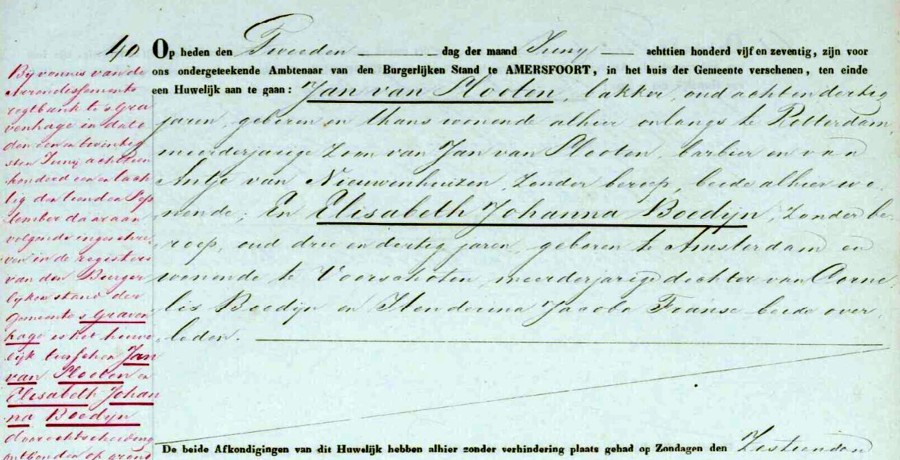 40
Op heden den Tweeden dag der maand Juny achttien honderd vijf en zeventig, zijn voor
ons ondergeteekende Ambtenaar van den Burgerlijken Stand te AMERSFOORT, in het huis der Gemeente verschenen, ten einde
een Huwelijk aan te gaan: Jan van Slooten, bakker, oud acht en dertig
jaren, geboren en thans wonende alhier onlangs te Rotterdam,
meerderjarige zoon van Jan van Slooten, barbier en van
Antje van Nieuwenhuizen, zonder beroep, beide alhier wo=
nende; En Elisabeth Johanna Boedijn, zonder be=
roep, oud drie en dertig jaren, geboren te Amsterdam en
wonende te Voorschoten, meerderjarige dochter van Corne=
lis Boedijn en Henderina Jacoba Franse beide over=
leden.
De beide Afkondigingen van dit Huwelijk hebben alhier zonder verhindering plaats gehad op Zondagen den Zestienden
Bij vonnis van de
Arrondissements
regtbank te 's Gra
venhage in dato
den een en twintig
sten Junij achttien
honderd een en tach
tig den tienden Sep
tember daaraan
volgende ingeschre
ven in de registers
van den Burger
lijken stand der
gemeente 's Graven
hage is het huwe
lijk tusschen Jan
van Slooten en
Elisabeth Johan
na Boedijn
door echtscheiding
ontbonden op grond